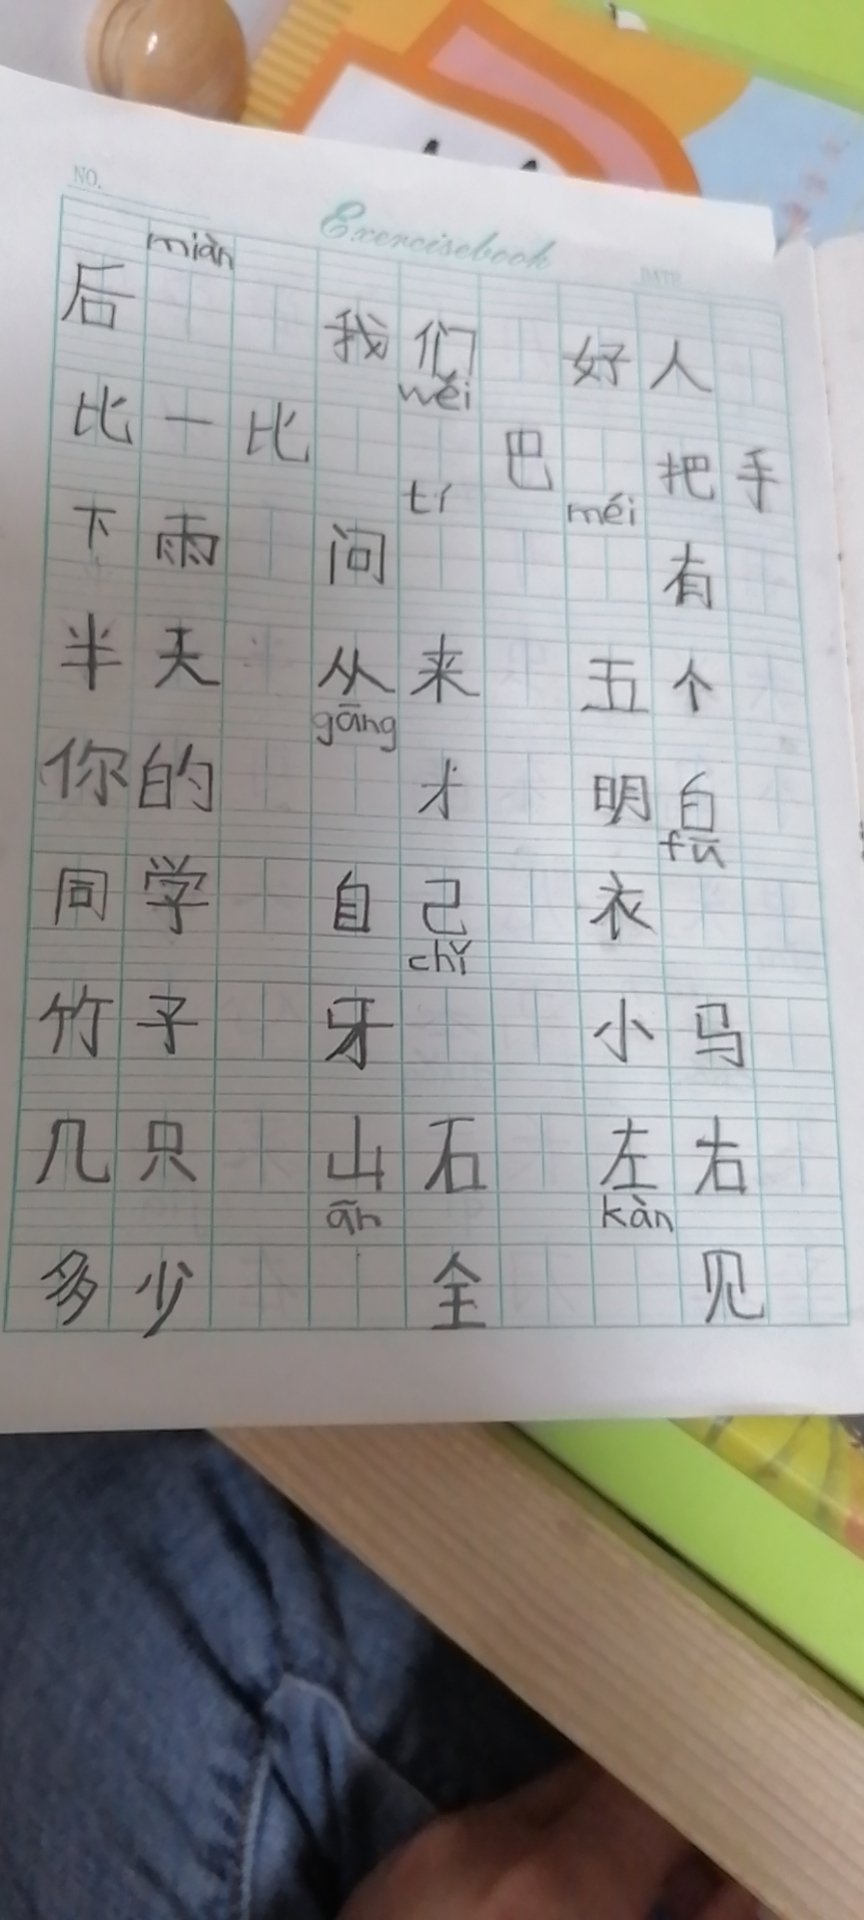 NO.
Exercisebook
DATE
miàn
后 我们 好人
wěi
比一比 巴 把手
tí méi
下雨 问 有
半天 从来 五个
gāng
你的 才 明白
fū
同学 自己 衣
chǐ
竹子 牙 小马
几只 山石 左右
ān kàn
多少 全 见